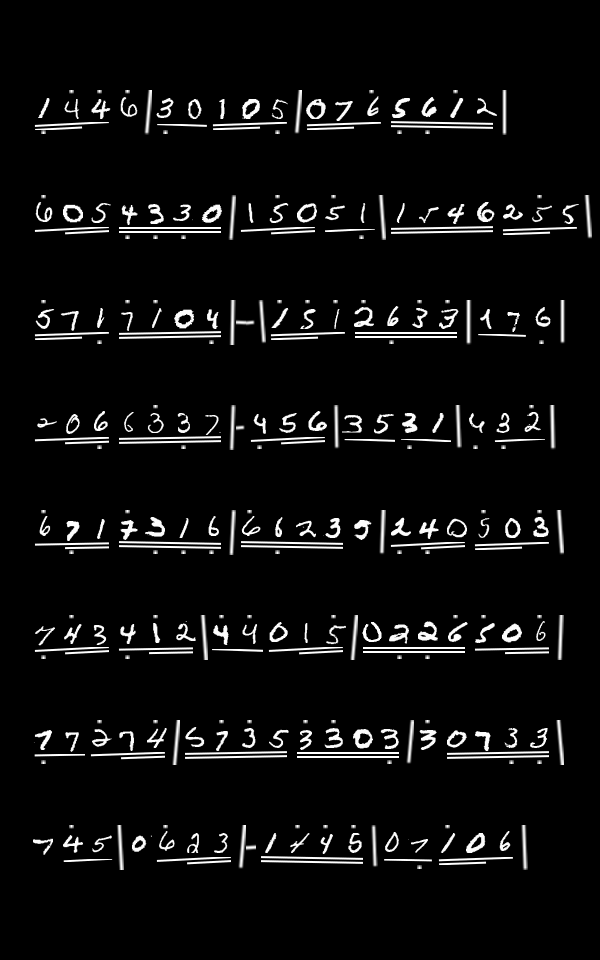 1446|30105|0765612
6054330|15051|1546255
5717104|-|1512633|176
2066337|-456|3531|432
6717316|66235|240503
743412|44015|0226506
77274|57353303|307333
745|0623|-1445|07106